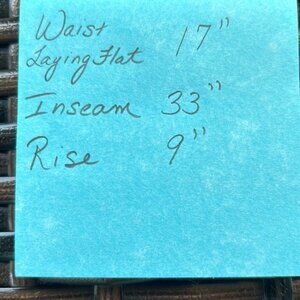 Waist
Laying Flat 17"
Inseam 33"
Rise 9"